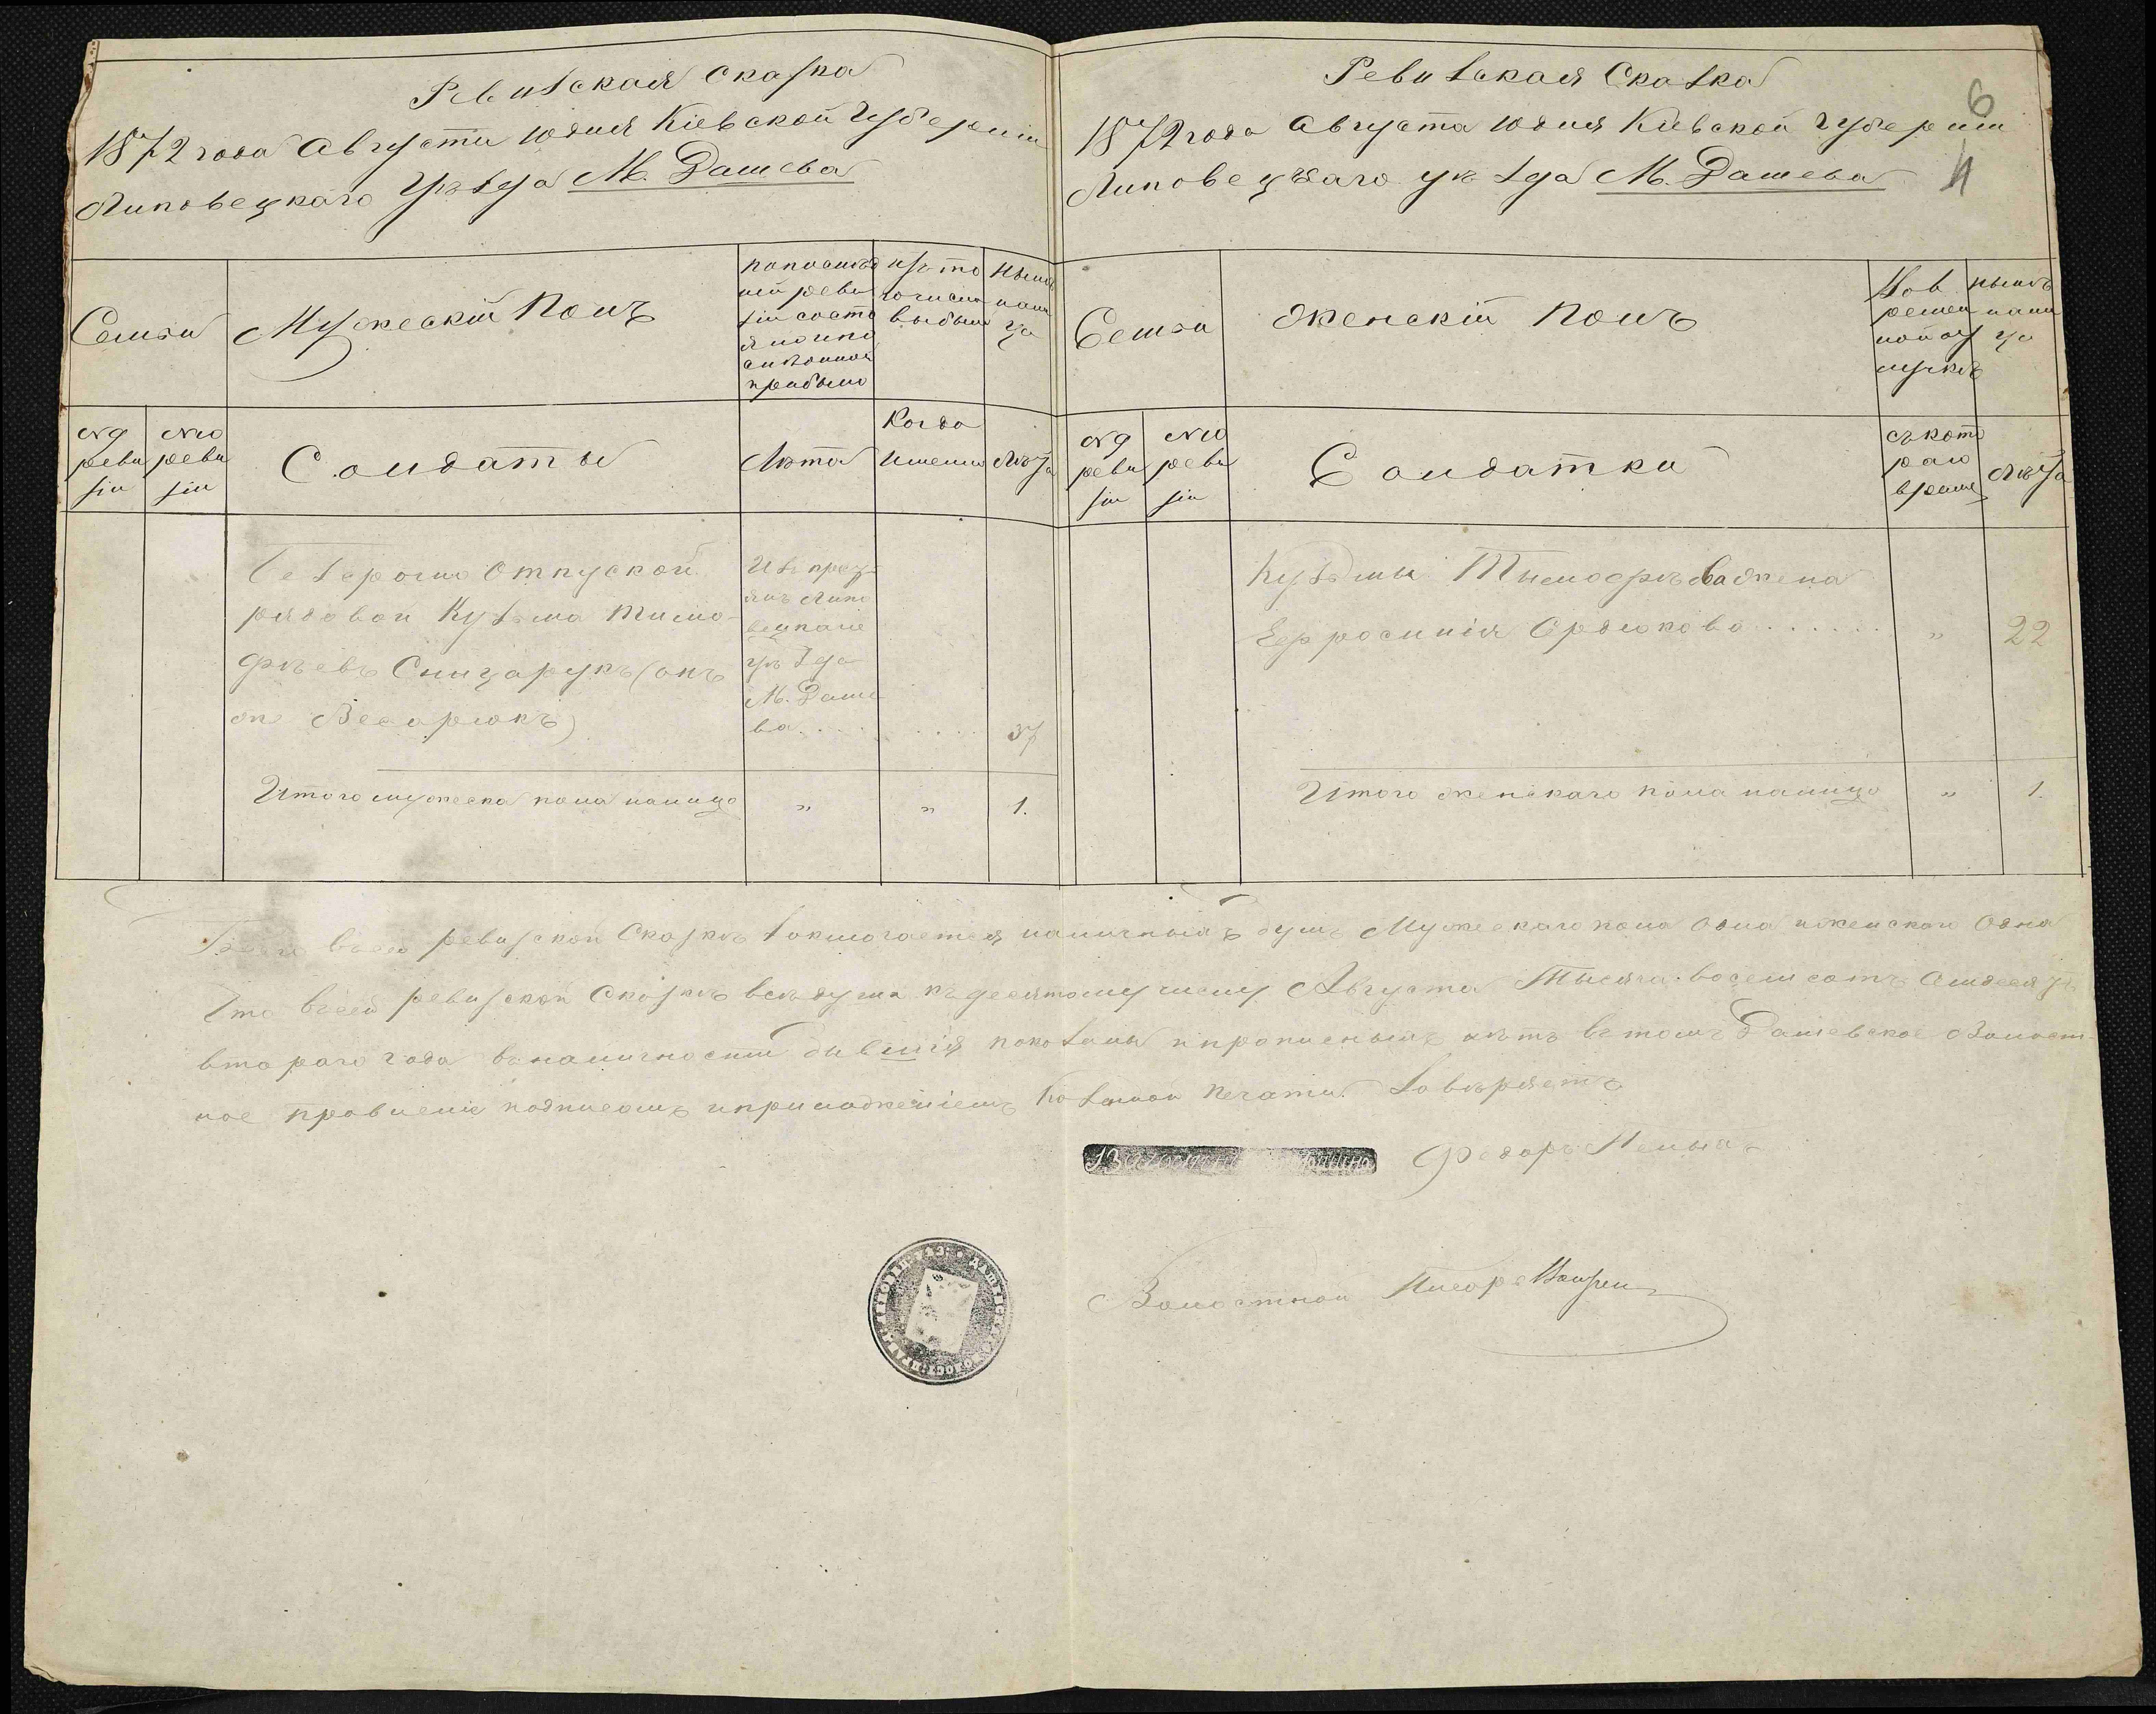 Ревизская сказка
1872 года Августа 10 дня Кіевской Губерніи
Липовецкаго Уѣзда М. Дашева
Семьи
Мужескій Полъ
по послѣд
ней реви
зіи состо
яло и по
слѣ оной
прибыло
изъ то
го числа
выбыло
Нынѣ
нали
цо
№ 9
реви
зіи
№ 10
реви
зіи
Солдаты
Лѣта
Когда
имянно
Лѣта
Безсрочно отпускной
рядовой Кузьма Тимо-
фѣевъ Сницарукъ (онъ
же Весарюкъ)
Липо
вецкаго
уѣзда
М. Даше
ва . . . . . . . . 37
Итого мужеска пола налицо " " 1.
Ревизская Сказка
6
4
1872 года Августа 10 дня Кіевской Губерніи
Липовецкаго уѣзда М. Дашева
Семьи
Женскій Полъ
Во вре
менной от
лучкѣ
нынѣ
нали
цо
№ 9
реви
зіи
№ 10
реви
зіи
Солдатки
съ кото
раго
время
Лѣта
Кузьмы Тимофѣева жена
Ефросинія Сердюкова . . . . . . " 22
Итого женскаго пола налицо " 1.
Всего въ сей ревизской Сказкѣ заключается наличныхъ душъ Мужескаго пола одна и женскаго Одна
Что въ сей ревизской Сказкѣ всѣ души къ десятому числу Августа Тысяча восемсотъ Семдесятъ
втораго года въ наличности бывшія показаны и прописныхъ нѣтъ въ томъ Дашевское Волост-
ное правленіе подписомъ и приложеніемъ казенной печати завѣряетъ
Федоръ
Волостной Писарь